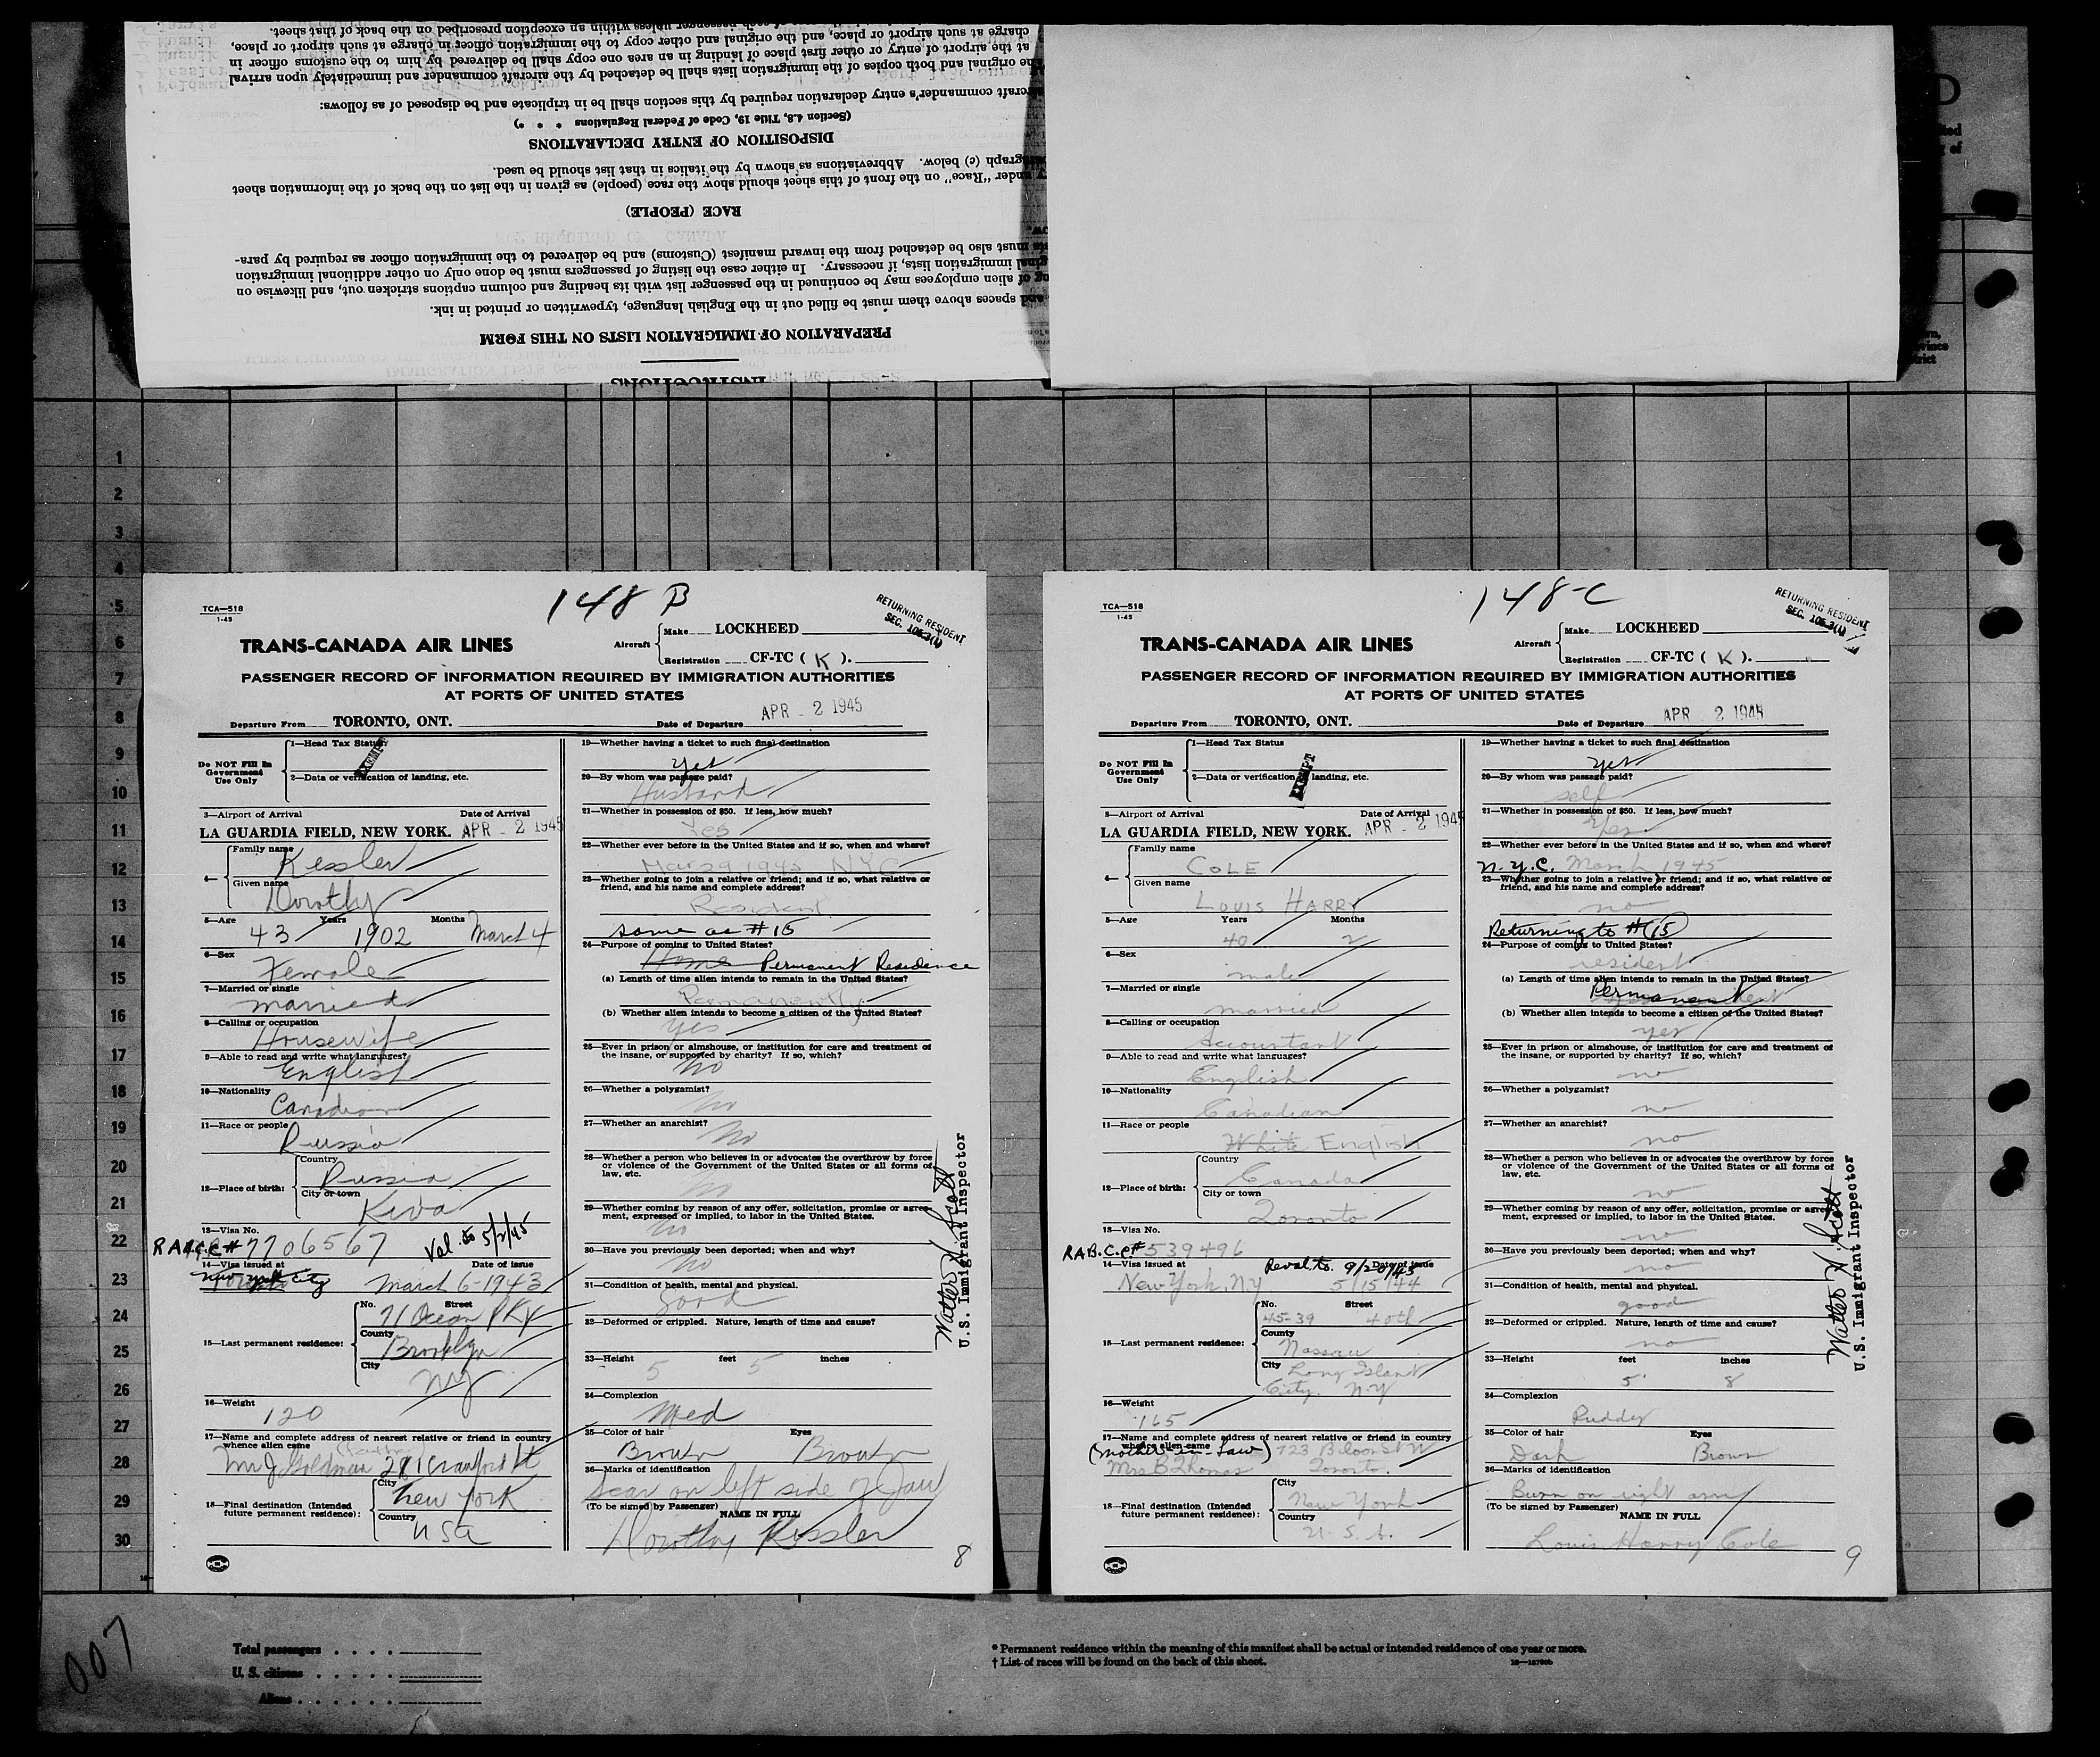 charge at such airport or place, and the original and other copy to the immigration officer in charge at such airport or place,
unless within an exception prescribed on the back of that sheet.
at the airport of entry or other first place of landing in an area one copy shall be delivered by him to the customs officer in
The original and both copies of the immigration lists shall be detached by the aircraft commander and immediately upon arrival
aircraft commander's entry declaration required by this section shall be in triplicate and be disposed of as follows:
(Section 4.8, Title 19, Code of Federal Regulations * * *)
DISPOSITION OF ENTRY DECLARATIONS
paragraph (c) below. Abbreviations as shown by the italics in that list should be used.
under "Race" on the front of this sheet should show the race (people) as given in the list on the back of the information sheet
RACE (PEOPLE)
must also be detached from the inward manifest (Customs) and be delivered to the immigration officer as required by para-
immigration lists, if necessary. In either case the listing of passengers must be done only on other additional immigration
of alien employees may be continued in the passenger list with its heading and column captions stricken out, and likewise on
and spaces above them must be filled out in the English language, typewritten or printed in ink.
PREPARATION OF IMMIGRATION LISTS ON THIS FORM
INSTRUCTIONS
1
2
3
4
5
6
7
8
9
10
11
12
13
14
15
16
17
18
19
20
21
22
23
24
25
26
27
28
29
30
148 B
TCA—518
1-45
RETURNING RESIDENT
SEC. 105.3(1)
TRANS-CANADA AIR LINES
Aircraft
Make LOCKHEED
Registration CF-TC ( K ).
PASSENGER RECORD OF INFORMATION REQUIRED BY IMMIGRATION AUTHORITIES
AT PORTS OF UNITED STATES
Departure From TORONTO, ONT. Date of Departure APR - 2 1945
Do NOT Fill In
Government
Use Only
1—Head Tax Status
EXEMPT
2—Data or verification of landing, etc.
3—Airport of Arrival Date of Arrival
LA GUARDIA FIELD, NEW YORK. APR - 2 1945
4—
Family name Kessler
Given name Dorothy
5—Age Years Months
43 1902 March 4
6—Sex
Female
7—Married or single
married
8—Calling or occupation
Housewife
9—Able to read and write what languages?
English
10—Nationality
Canadian
11—Race or people
Russia
12—Place of birth:
Country
Russia
City or town
Kiva
13—Visa No.
R A B.C.C# 7706567 Val. to 5/2/45
14—Visa issued at Date of issue
New York City March 6-1943
15—Last permanent residence:
No. Street
71 Ocean PKY
County
Brooklyn
City
NY
16—Weight
120
17—Name and complete address of nearest relative or friend in country
whence alien came (Father)
Mr J. Goldman 281 Crawford St
18—Final destination (Intended
future permanent residence):
City
New York
Country
USA
19—Whether having a ticket to such final destination
yes
20—By whom was passage paid?
Husband
21—Whether in possession of $50. If less, how much?
Yes
22—Whether ever before in the United States and if so, when and where?
Mar 29 1945 NYC
23—Whether going to join a relative or friend; and if so, what relative or
friend, and his name and complete address?
Resident
same as #15
24—Purpose of coming to United States?
Home Permanent Residence
(a) Length of time alien intends to remain in the United States?
Permanently
(b) Whether alien intends to become a citizen of the United States?
yes
25—Ever in prison or almshouse, or institution for care and treatment of
the insane, or supported by charity? If so, which?
No
26—Whether a polygamist?
No
27—Whether an anarchist?
No
28—Whether a person who believes in or advocates the overthrow by force
or violence of the Government of the United States or all forms of
law, etc.
No
29—Whether coming by reason of any offer, solicitation, promise or agree-
ment, expressed or implied, to labor in the United States.
No
30—Have you previously been deported; when and why?
No
31—Condition of health, mental and physical.
Good
32—Deformed or crippled. Nature, length of time and cause?
33—Height feet inches
5 5
34—Complexion
Med
35—Color of hair Eyes
Brown Brown
36—Marks of identification
Scar on left side of Jaw
(To be signed by Passenger) NAME IN FULL
Dorothy Kessler
8
Walter H Scott
U.S. Immigrant Inspector
148-C
TCA—518
1-45
RETURNING RESIDENT
SEC. 105.3(1)
TRANS-CANADA AIR LINES
Aircraft
Make LOCKHEED
Registration CF-TC ( K ).
PASSENGER RECORD OF INFORMATION REQUIRED BY IMMIGRATION AUTHORITIES
AT PORTS OF UNITED STATES
Departure From TORONTO, ONT. Date of Departure APR 2 1945
Do NOT Fill In
Government
Use Only
1—Head Tax Status
EXEMPT
2—Data or verification landing, etc.
3—Airport of Arrival Date of Arrival
LA GUARDIA FIELD, NEW YORK. APR - 2 1945
4—
Family name
COLE
Given name
LOUIS HARRY
5—Age Years Months
40 2
6—Sex
male
7—Married or single
married
8—Calling or occupation
Accountant
9—Able to read and write what languages?
English
10—Nationality
Canadian
11—Race or people
White English
12—Place of birth:
Country
Canada
City or town
Toronto
13—Visa No.
RAB.C.C# 539496
14—Visa issued at Reval to. 9/20/45 Date of issue
New York, NY 5/15/44
15—Last permanent residence:
No. Street
45-39 40th
County
Nassau
City
Long Island
City. N.Y
16—Weight
165
17—Name and complete address of nearest relative or friend in country
whence alien came
(Mother-in-Law) 723 Bloor St W
Mrs B Thomas Toronto.
18—Final destination (Intended
future permanent residence):
City
New York
Country
U.S.A.
19—Whether having a ticket to such final destination
yes
20—By whom was passage paid?
self
21—Whether in possession of $50. If less, how much?
Yes
22—Whether ever before in the United States and if so, when and where?
N.Y.C. March 1945
23—Whether going to join a relative or friend; and if so, what relative or
friend, and his name and complete address?
no
Returning to #(15)
24—Purpose of coming to United States?
resident
(a) Length of time alien intends to remain in the United States?
Permanent
(b) Whether alien intends to become a citizen of the United States?
yes
25—Ever in prison or almshouse, or institution for care and treatment of
the insane, or supported by charity? If so, which?
no
26—Whether a polygamist?
no
27—Whether an anarchist?
no
28—Whether a person who believes in or advocates the overthrow by force
or violence of the Government of the United States or all forms of
law, etc.
no
29—Whether coming by reason of any offer, solicitation, promise or agree-
ment, expressed or implied, to labor in the United States.
no
30—Have you previously been deported; when and why?
no
31—Condition of health, mental and physical.
good
32—Deformed or crippled. Nature, length of time and cause?
no
33—Height feet inches
5' 8
34—Complexion
Ruddy
35—Color of hair Eyes
Dark Brown
36—Marks of identification
Burn on right arm
(To be signed by Passenger) NAME IN FULL
Louis Harry Cole
9
Walter H Scott
U.S. Immigrant Inspector
007
Total passengers
U. S. citizens
Aliens
* Permanent residence within the meaning of this manifest shall be actual or intended residence of one year or more.
† List of races will be found on the back of this sheet.